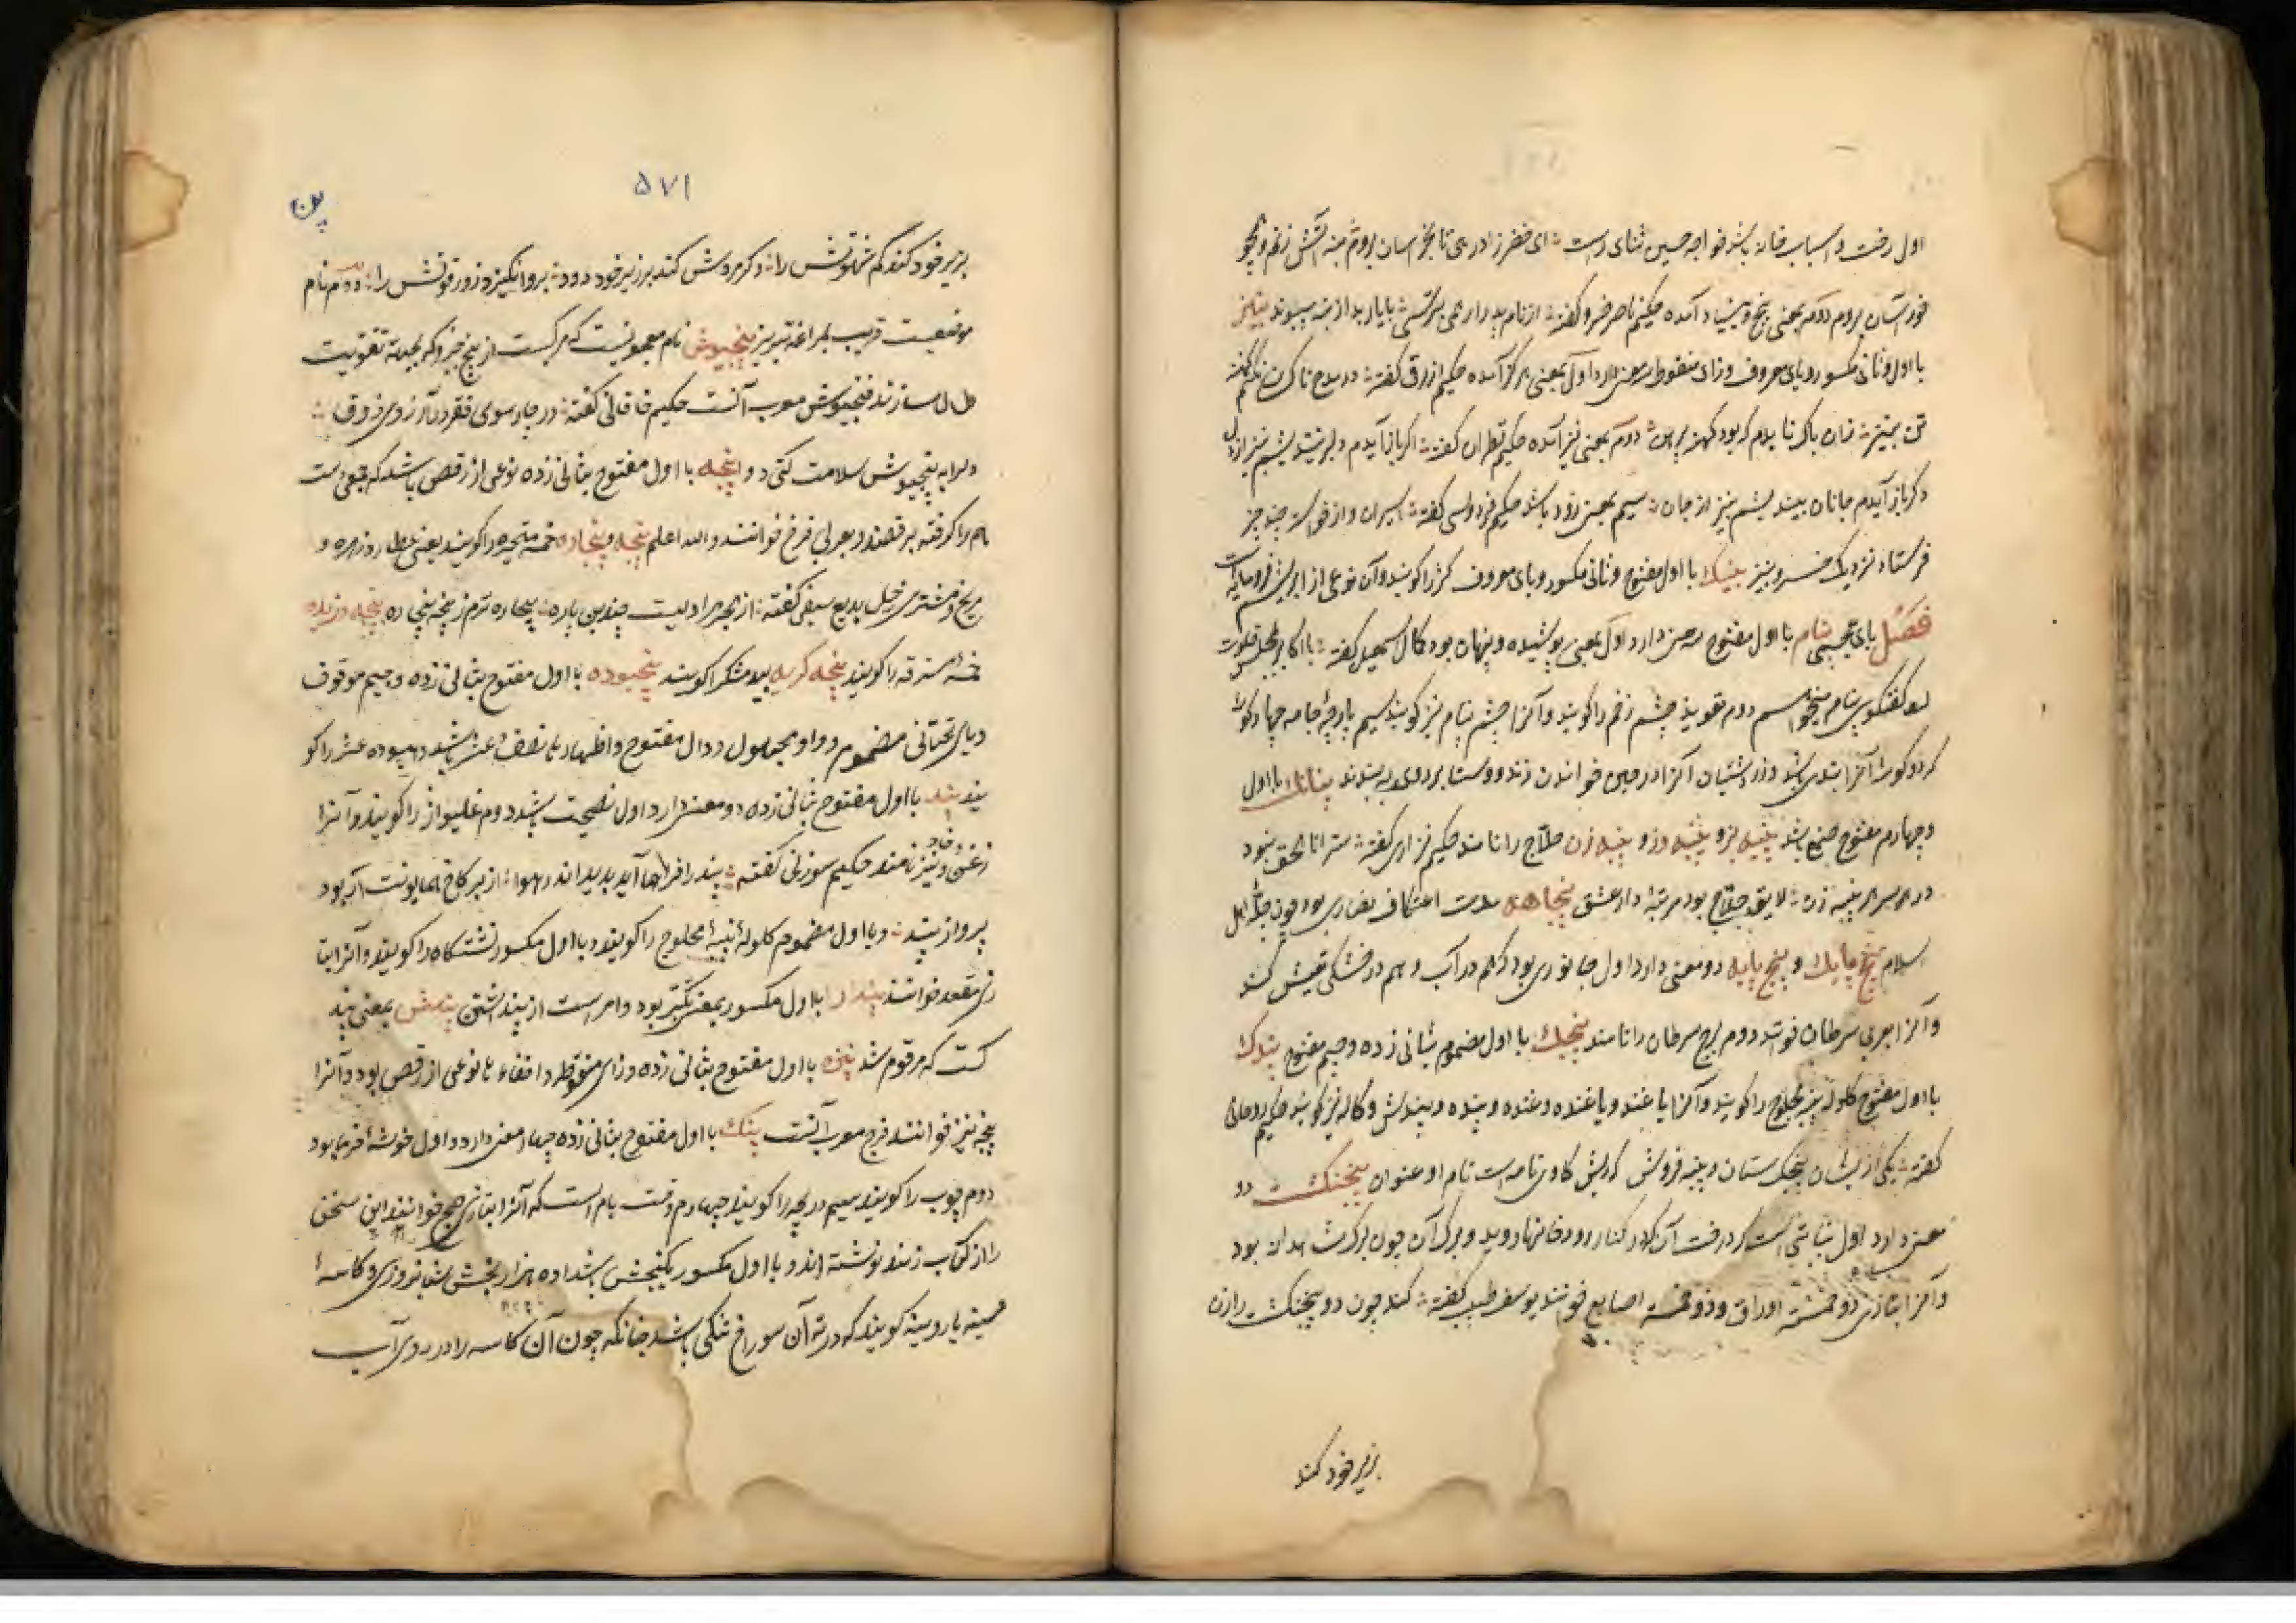 اول رخت و اسباب خانه باشد خواجه حسین ثنای راست ای خضر زاد رهی تا بخراسان بروم بنه آتش زنم و همچو
خور آسان بروم دوم بمعنی بیخ و بنیاد آمده حکیم ناصر خسرو گفته از نام بد ار همی بترسی با یار بد از بنه مپیوند بنیز
با اول و ثانی مکسور و یای معروف و زای منقوطه سه معنی دارد اول بمعنی هرگز آمده حکیم ازرقی گفته در مدح ناکسان نکنم کهنه
تن بنیز زان باک نایدم که بود کهنه پیرهن دوم بمعنی نیز آمده حکیم قطران گفته اگر باز آیدم دلبر نیندیشم بنیز از دل
وگر باز آیدم جانان نیندیشم بنیز از جان سیم بمعنی زود باشد حکیم فردوسی گفته اسیران و از خواسته چند چیز
فرستاد نزدیک خسرو بنیز بنیک با اول مفتوح و ثانی مکسور و یای معروف کژ را گویند و آن نوعی از ابریشم فرومایه است
فصل بای عجمی پنام با اول مفتوح سه معنی دارد اول بمعنی پوشیده و پنهان بود کمال اسمعیل گفته با اکابر بمجلس خلوت
گفتگوی پنام میخواهم دوم تعویذ چشم زخم را گویند و آنرا چشم پنام نیز گویند سیم پارچهٔ جامه چهار گوشه
که دو گوشه آنرا بندی باشد و زردشتیان آنرا در حین خواندن زند و وستا بر روی به بندند پنانک با اول
و چهارم مفتوح صمغ باشد پنبه بز و پنبه دوز و پنبه زن حلاج را نامند حکیم نزاری گفته ستر انا الحق نبود
در سر هر پنبه زن لایق حلاج بود مرتبهٔ دار عشق پنجاهه مدت اعتکاف نصاری بود چون چلهٔ اهل
اسلام پنج پایک و پنج پایه دو معنی دارد اول جانوری بود که هم در آب و هم در خشکی تعیش کند
و آنرا بعربی سرطان خوانند دوم برج سرطان را نامند پنجک با اول مضموم بثانی زده و جیم مفتوح پندک
با اول مفتوح کلوله پنبه محلوج را گویند و آنرا پاغند و پاغنده و غنده و پنده و پندش و کاله نیز گویند حکیم روحانی
گفته یکی از ایشان پنجک ستان و پنبه فروش که ریش گاوی نامه است نام او عنوان پنجنکشت دو
معنی دارد اول نباتی است که درخت آن در کنار رودخانها روید و برگ آن چون برگ شهدانه بود
و آنرا بتازی ذو خمسة اوراق و ذو خمسة اصابع خوانند یوسف طبیب گفته کند چون دو پنجنکشت را زن
بزیر خود کند
۵۷۱
پن
بزیر خود کند کم شهوتش را وگر مردش کند بر زیر خود دود برو انگیزد زور قوتش را دوم نام
موضعیست قریب بمراغه تبریز پنجیوش نام معجونیست که مرکبست از پنج چیز و که بجهة تقویت
سازند فنجیوش معرب آنست حکیم خاقانی گفته در چارسوی فقر در آ از زوی ذوق
دل را به پنجیوش سلامت کنی دوا پنجه با اول مفتوح بثانی زده نوعی از رقص باشد که جمعی دست
هم را گرفته برقصند و بعربی فنزج خوانند والله اعلم پنجه و پنجاره خمسه متحیره را گویند یعنی عطارد و زهره و
مریخ و مشتری و زحل بدیع سیفی گفته از بهر مرا دلیست چندین پاره بیچاره ترم ز پنجه پنجاره پنجه دزدیده
خمسهٔ مسترقه را گویند پنجه کربه بیدمشک را گویند پنجیوده با اول مفتوح بثانی زده و جیم موقوف
و یای تحتانی مضموم و واو مجهول و دال مفتوح و اظهار ها نصف عشر باشد و هیوده عشر را گو
یند پند با اول مفتوح بثانی زده دو معنی دارد اول نصیحت باشد دوم غلیواژ را گویند و آنرا
زغن و خاد نیز نامند حکیم سوزنی گفته پند را فرهما آید پدید اندر هوا از بر کاخ همایونت ار بود
پرواز پند و با اول مضموم کلولهٔ پنبهٔ محلوج را گویند و با اول مکسور نشستگاه را گویند و آنرا بتا
زی مقعد خوانند پندار با اول مکسور بمعنی تکبر بود و امر است از پنداشتن پندش بمعنی پند
کست که مرقوم شد پنزه با اول مفتوح بثانی زده و زای منقوطه و اخفاء ها نوعی از رقص بود و آنرا
پنجه نیز خوانند فنزج معرب آنست پنک با اول مفتوح بثانی زده چهار معنی دارد اول خوشهٔ خرما بود
دوم چوب را گویند سیم دریچه را گویند چهارم وقت بام است که آنرا بتازی صبح خوانند این سخن
را از کتاب زند نوشته اند و با اول مکسور یکبخش باشد از ده هزار بخش شبانروزی و کاسهٔ
مسینه یا روینه گویند که در ته آن سوراخ تنکی باشد چنانکه چون آن کاسه را در روی آب